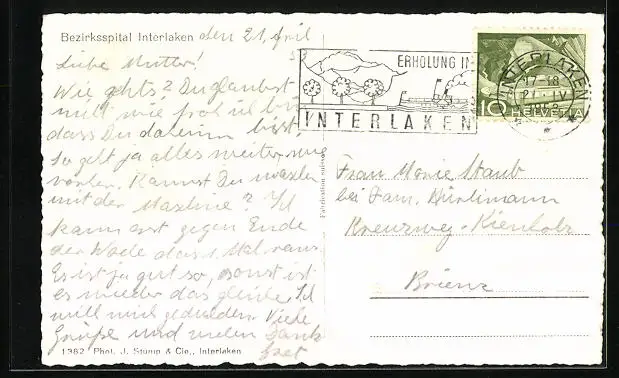 Bezirksspital Interlaken den 21. April
Liebe Mutter!
Wie gehts? Du glaubst
nicht wie froh ich bin
dass Du daheim bist,
so geht ja alles weiter wie
vorher. Kannst Du waschen
mit der Maschine? Ich
kann erst gegen Ende
der Woche das 1. Mal raus.
Es ist ja gut so, sonst ist
es wieder das gleiche. Ich
will mich gedulden. Viele
Grüsse und vielen Dank
1382 Phot. J. Stump & Cie., Interlaken
Fabrication suisse
ERHOLUNG IN
INTERLAKEN
INTERLAKEN
17-18
21. IV
10 HELVETIA
Frau Marie Staub
bei Fam. Dürlimann
Kreuzweg-Kienholz
Brienz